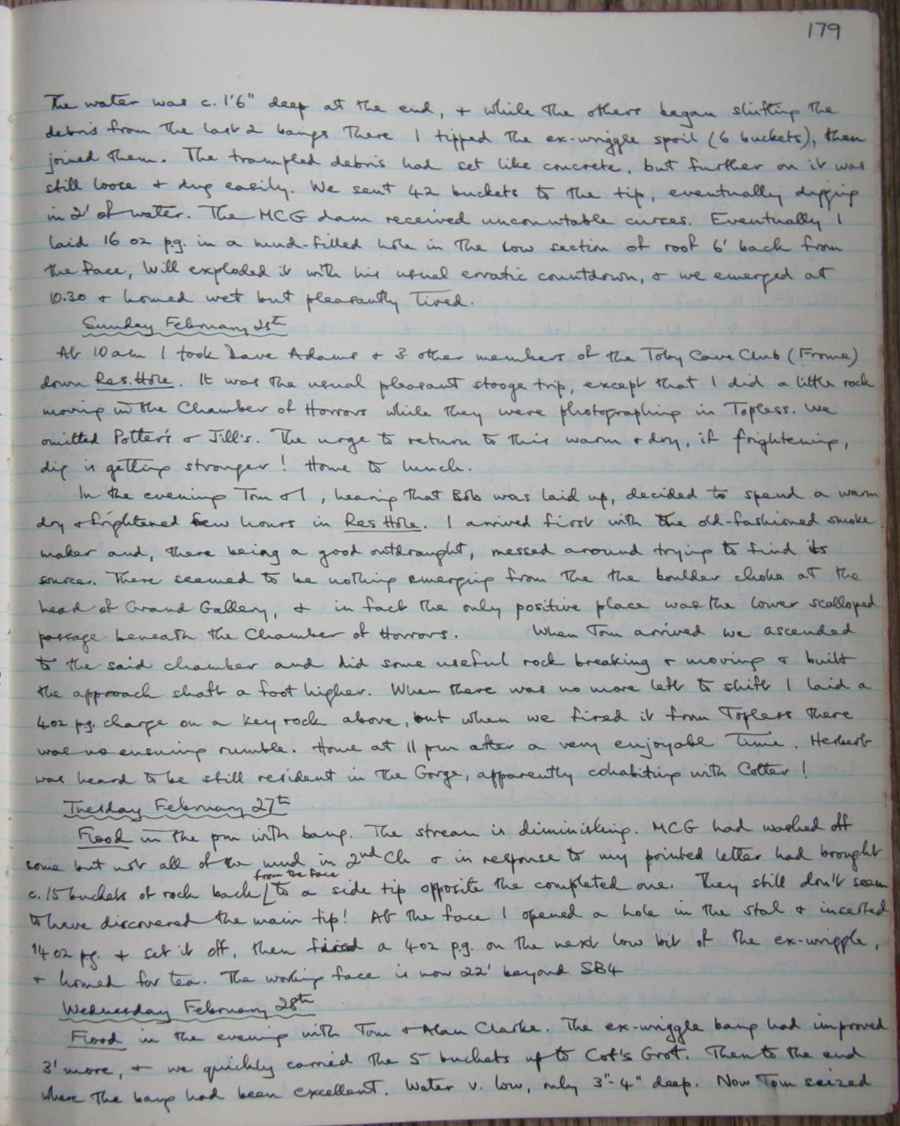 179
The water was c. 1'6" deep at the end, + while the others began shifting the
debris from the last 2 bangs there I tipped the ex-wriggle spoil (6 buckets), then
joined them. The trampled debris had set like concrete, but further on it was
still loose + dug easily. We sent 42 buckets to the tip, eventually digging
in 2' of water. The MCG dam received uncountable curses. Eventually I
laid 16 oz pg. in a mud-filled hole in the low section of roof 6' back from
the face, Will exploded it with his usual erratic countdown, & we emerged at
10.30 & homed wet but pleasantly tired.
Sunday February 25th
At 10am I took Dave Adams + 3 other members of the Toby Cave Club (Frome)
down Res. Hole. It was the usual pleasant stooge trip, except that I did a little rock
moving in the Chamber of Horrors while they were photographing in Topless. We
omitted Potter's & Jill's. The urge to return to this warm + dry, if frightening,
dig is getting stronger! Home to lunch.
In the evening Tom + I, hearing that Bob was laid up, decided to spend a warm
dry + frightened few hours in Res Hole. I arrived first with the old-fashioned smoke
maker and, there being a good outdraught, messed around trying to find its
source. There seemed to be nothing emerging from the the boulder choke at the
head of Grand Gallery, & in fact the only positive place was the lower scalloped
passage beneath the Chamber of Horrors. When Tom arrived we ascended
to the said chamber and did some useful rock breaking & moving & built
the approach shaft a foot higher. When there was no more left to shift I laid a
4oz pg. charge on a key rock above, but when we fired it from Topless there
was no ensuing rumble. Home at 11 pm after a very enjoyable time. Herbert
was heard to be still resident in the Gorge, apparently cohabiting with Cotter!
Tuesday February 27th
Flood in the pm with bang. The stream is diminishing. MCG had washed off
some but not all of the mud in 2nd Ch & in response to my printed letter had brought
c. 15 buckets of rock back from the face to a side tip opposite the completed one. They still don't seem
to have discovered the main tip! At the face I opened a hole in the stal & inserted
14 oz pg. + set it off, then fired a 4oz pg. on the next low bit of the ex-wriggle,
+ homed for tea. The working face is now 22' beyond SB4
Wednesday February 28th
Flood in the evening with Tom + Alan Clarke. The ex-wriggle bang had improved
3' more, + we quickly carried the 5 buckets up to Cot's Grot. Then to the end
where the bang had been excellent. Water v. low, only 3"-4" deep. Now Tom seized